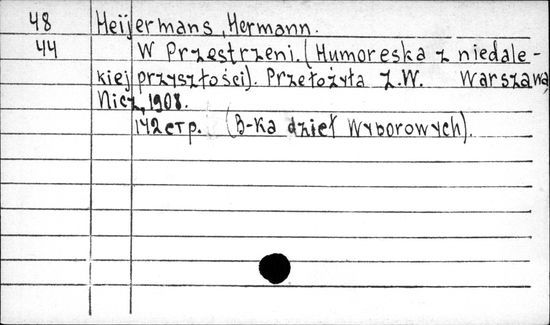 48 Heijermans, Hermann.
44 W Przestrzeni. (Humoreska z niedale-
kiej przyszłości). Przełożyła Z.W. Warszawa,
Nicz, 1908.
142 стр. (B-ka dzieł wyborowych).